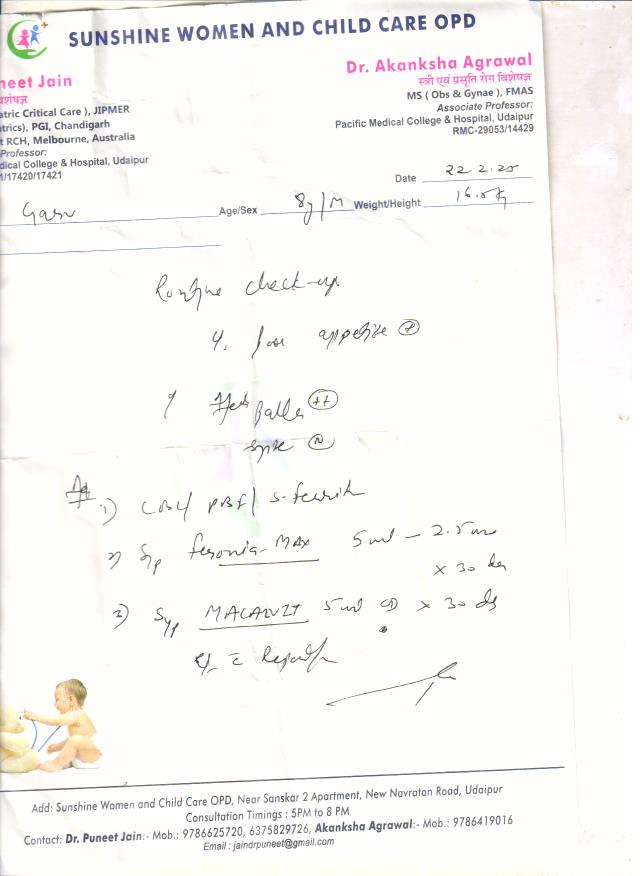 SUNSHINE WOMEN AND CHILD CARE OPD
neet Jain
Dr. Akanksha Agrawal
वशेषज्ञ
स्त्री एवं प्रसूति रोग विशेषज्ञ
atric Critical Care ), JIPMER
MS ( Obs & Gynae ), FMAS
trics), PGI, Chandigarh
Associate Professor:
t RCH, Melbourne, Australia
Pacific Medical College & Hospital, Udaipur
Professor:
RMC-29053/14429
dical College & Hospital, Udaipur
1/17420/17421
Date 22.2.25
Age/Sex 8y/M Weight/Height 16.5kg
Routine check-up
poor appetite +
++
N
1) CBC/ PBF/ S-ferritin
2) Syp feronia-MAX 5ml - 2.5ml
x 30 days
3) Syp MACALVIT 5ml OD x 30 days
Add: Sunshine Women and Child Care OPD, Near Sanskar 2 Apartment, New Navratan Road, Udaipur
Consultation Timings : 5PM to 8 PM
Contact: Dr. Puneet Jain:- Mob.: 9786625720, 6375829726, Akanksha Agrawal:- Mob.: 9786419016
Email : jaindrpuneet@gmail.com